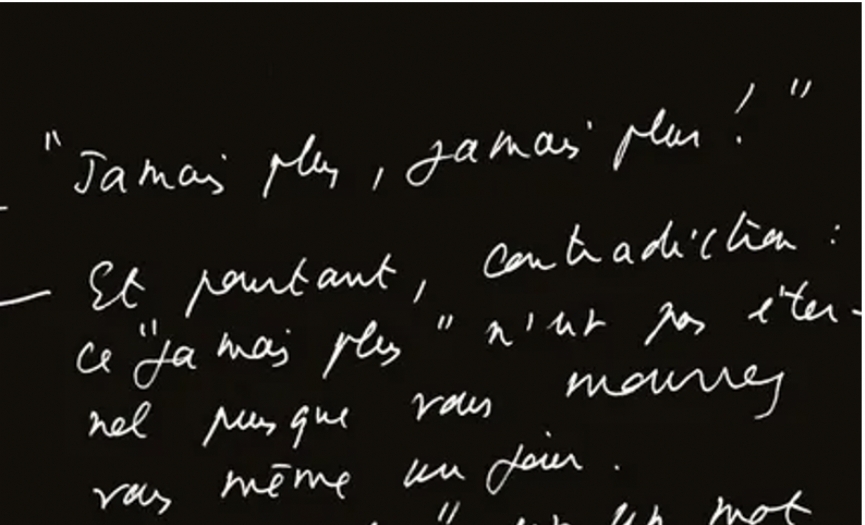 "Jamais plus, jamais plus !"
Et pourtant, contradiction :
ce "jamais plus" n'est pas éter-
nel puisque vous mourrez
vous même un jour.
" est un mot